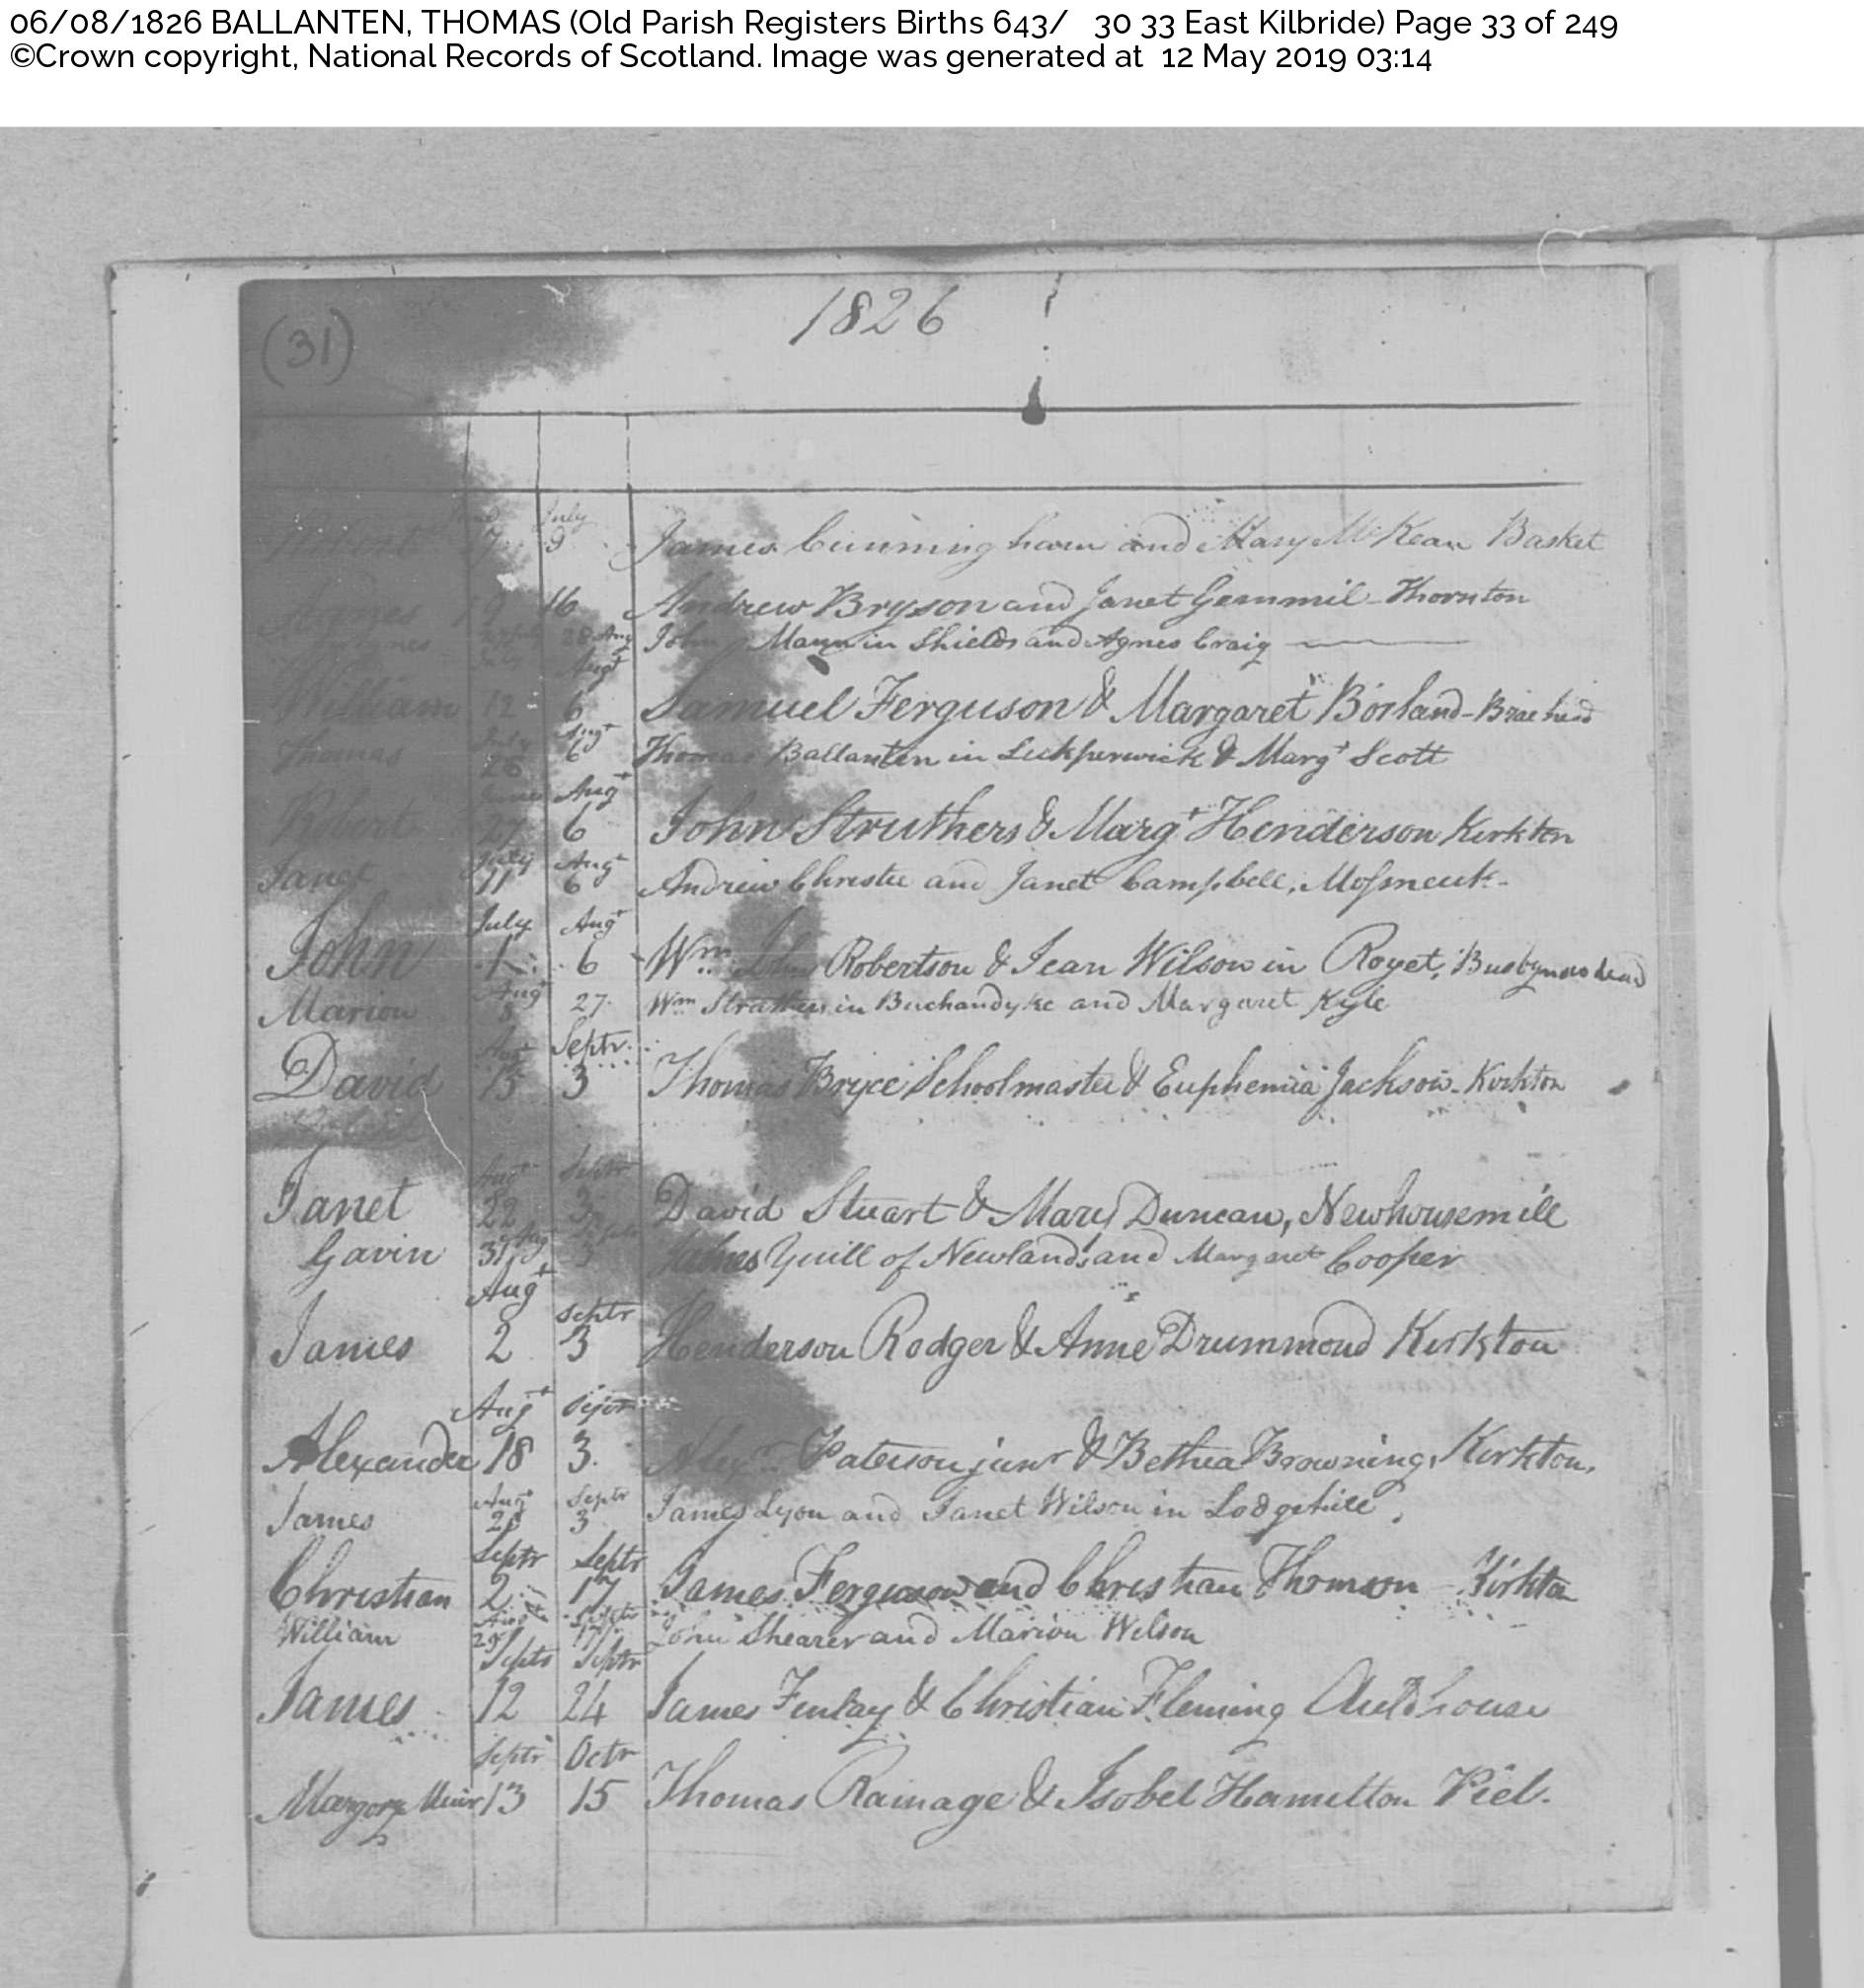 06/08/1826 BALLANTEN, THOMAS (Old Parish Registers Births 643/ 30 33 East Kilbride) Page 33 of 249
©Crown copyright, National Records of Scotland. Image was generated at 12 May 2019 03:14
(31)
1826
July
9 James Cunningham and Mary McKean Basket
Agnes 9 16 Andrew Bryson and Janet Gemmil - Thornton
John Mann in Shields and Agnes Craig
Augt
William 12 6 Samuel Ferguson & Margaret Borland - Braehead
July Augt
Thomas 26 6 Thomas Ballanten in Lickprivick & Margt Scott
June Augt
Robert 27 6 John Struthers & Margt Henderson Kirkton
July Augt
Janet 11 6 Andrew Christie and Janet Campbell, Mossneuk -
July Augt
John 1 6 Wm John Robertson & Jean Wilson in Royet, Busbymoshead
Augt
Marion 8 27 Wm Struthers in Buchandyke and Margaret Kyle
Augt Septr
David 15 3 Thomas Bryce Schoolmaster & Euphemia Jackson - Kirkton
Robert
Augt Septr
Janet 22 3 David Stuart & Mary Duncan, Newhousemill
Augt
Gavin 31 3 James Yuill of Newlands and Margaret Cooper
Augt Septr
James 2 3 Henderson Rodger & Anne Drummond Kirkton
Augt Septr
Alexander 18 3 Alexr Paterson junr & Bethia Browning, Kirkton,
Augt Septr
James 3 James Lyon and Janet Wilson in Lodgehill,
Septr Septr
Christian 2 17 James Ferguson and Christian Thomson - Kirkton
Augt Septr
William 29 17 John Shearer and Marion Wilson
Septr Septr
James 12 24 James Finlay & Christian Fleming Auldhouse
Septr Octr
Margory Muir 13 15 Thomas Ramage & Isobel Hamilton Piel.